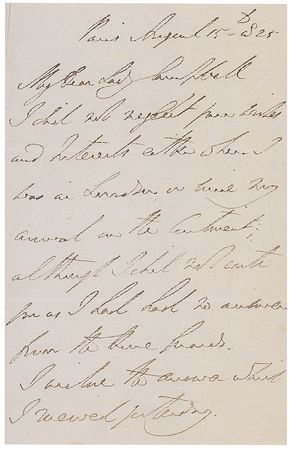 Paris August 15th 1825
My Dear Lady Campbell
I did not neglect your wishes
and Interests either when I
was in London or since my
arrival on the Continent;
although I did not write
you as I had had no answer
from the
I inclose the answer which
I received yesterday.